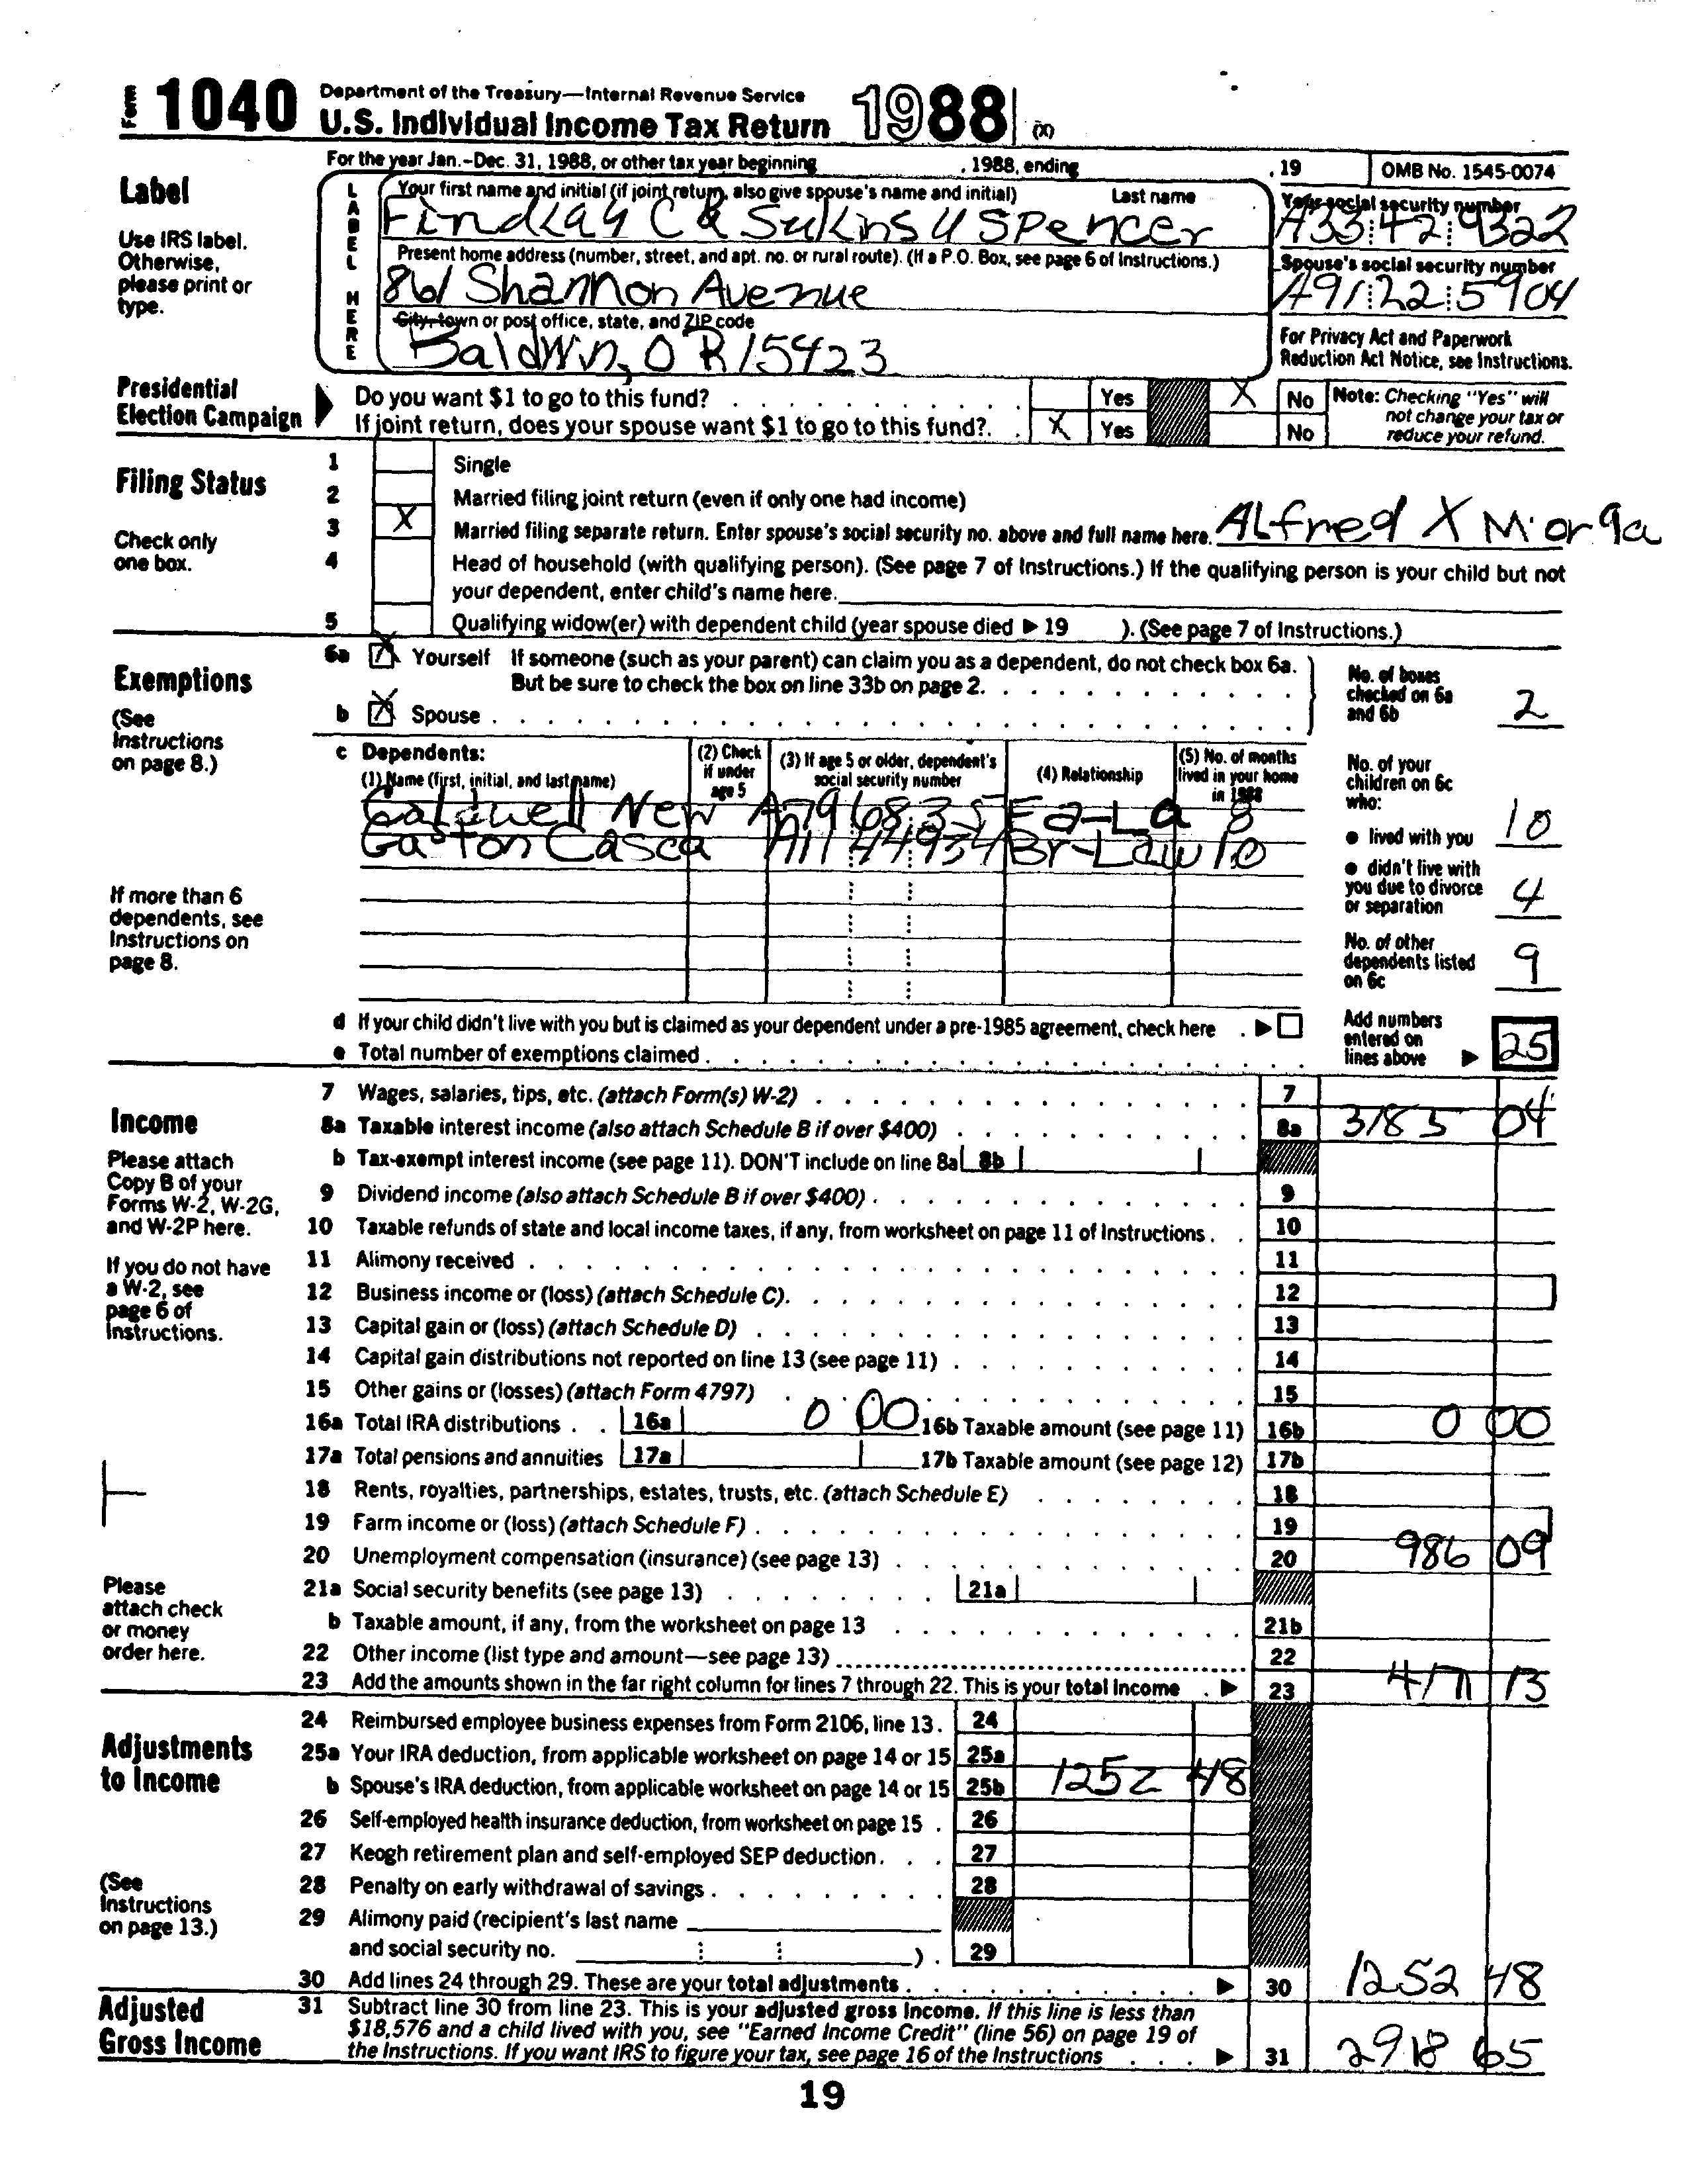 Form 1040 Department of the Treasury—Internal Revenue Service
U.S. Individual Income Tax Return 1988 (X)
For the year Jan.–Dec. 31, 1988, or other tax year beginning , 1988, ending , 19 OMB No. 1545-0074
Label
Use IRS label.
Otherwise,
please print or
type.
LABEL HERE
Your first name and initial (if joint return, also give spouse's name and initial) Last name
Findlay C & Sukins U Spencer
Your social security number
A33 42 9322
Present home address (number, street, and apt. no. or rural route). (If a P.O. Box, see page 6 of Instructions.)
861 Shannon Avenue
Spouse's social security number
A91 22 5904
City, town or post office, state, and ZIP code
Baldwin, OR 15423
For Privacy Act and Paperwork
Reduction Act Notice, see Instructions.
Presidential
Election Campaign
Do you want $1 to go to this fund? Yes X No
If joint return, does your spouse want $1 to go to this fund? X Yes No
Note: Checking "Yes" will
not change your tax or
reduce your refund.
Filing Status
Check only
one box.
1 Single
2 Married filing joint return (even if only one had income)
3 X Married filing separate return. Enter spouse's social security no. above and full name here. ALfred X Morga
4 Head of household (with qualifying person). (See page 7 of Instructions.) If the qualifying person is your child but not
your dependent, enter child's name here.
5 Qualifying widow(er) with dependent child (year spouse died ▶ 19 ). (See page 7 of Instructions.)
Exemptions
(See
Instructions
on page 8.)
6a X Yourself If someone (such as your parent) can claim you as a dependent, do not check box 6a.
But be sure to check the box on line 33b on page 2.
b X Spouse
No. of boxes
checked on 6a
and 6b 2
c Dependents:
(1) Name (first, initial, and last name)
(2) Check
if under
age 5
(3) If age 5 or older, dependent's
social security number
(4) Relationship
(5) No. of months
lived in your home
in 1988
Caldwell New Fa-La 8
Gaston Casca A11 44 934 Br-Law 10
If more than 6
dependents, see
Instructions on
page 8.
No. of your
children on 6c
who:
● lived with you 10
● didn't live with
you due to divorce
or separation 4
No. of other
dependents listed
on 6c 9
d If your child didn't live with you but is claimed as your dependent under a pre-1985 agreement, check here ▶
e Total number of exemptions claimed
Add numbers
entered on
lines above ▶ 25
Income
Please attach
Copy B of your
Forms W-2, W-2G,
and W-2P here.
If you do not have
a W-2, see
page 6 of
Instructions.
Please
attach check
or money
order here.
7 Wages, salaries, tips, etc. (attach Form(s) W-2) 7
8a Taxable interest income (also attach Schedule B if over $400) 8a 3185 04
b Tax-exempt interest income (see page 11). DON'T include on line 8a 8b
9 Dividend income (also attach Schedule B if over $400) 9
10 Taxable refunds of state and local income taxes, if any, from worksheet on page 11 of Instructions 10
11 Alimony received 11
12 Business income or (loss) (attach Schedule C) 12
13 Capital gain or (loss) (attach Schedule D) 13
14 Capital gain distributions not reported on line 13 (see page 11) 14
15 Other gains or (losses) (attach Form 4797) 15
16a Total IRA distributions 16a 0 00 16b Taxable amount (see page 11) 16b 0 00
17a Total pensions and annuities 17a 17b Taxable amount (see page 12) 17b
18 Rents, royalties, partnerships, estates, trusts, etc. (attach Schedule E) 18
19 Farm income or (loss) (attach Schedule F) 19
20 Unemployment compensation (insurance) (see page 13) 20 986 09
21a Social security benefits (see page 13) 21a
b Taxable amount, if any, from the worksheet on page 13 21b
22 Other income (list type and amount—see page 13) 22
23 Add the amounts shown in the far right column for lines 7 through 22. This is your total income ▶ 23 4171 13
Adjustments
to Income
(See
Instructions
on page 13.)
24 Reimbursed employee business expenses from Form 2106, line 13 24
25a Your IRA deduction, from applicable worksheet on page 14 or 15 25a
b Spouse's IRA deduction, from applicable worksheet on page 14 or 15 25b 1252 48
26 Self-employed health insurance deduction, from worksheet on page 15 26
27 Keogh retirement plan and self-employed SEP deduction 27
28 Penalty on early withdrawal of savings 28
29 Alimony paid (recipient's last name
and social security no. ) 29
30 Add lines 24 through 29. These are your total adjustments ▶ 30 1252 48
Adjusted
Gross Income
31 Subtract line 30 from line 23. This is your adjusted gross income. If this line is less than
$18,576 and a child lived with you, see "Earned Income Credit" (line 56) on page 19 of
the Instructions. If you want IRS to figure your tax, see page 16 of the Instructions ▶ 31 2918 65
19